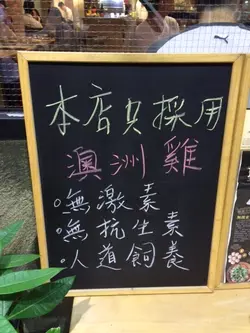 本店只採用
澳洲雞
•無激素
•無抗生素
•人道飼養